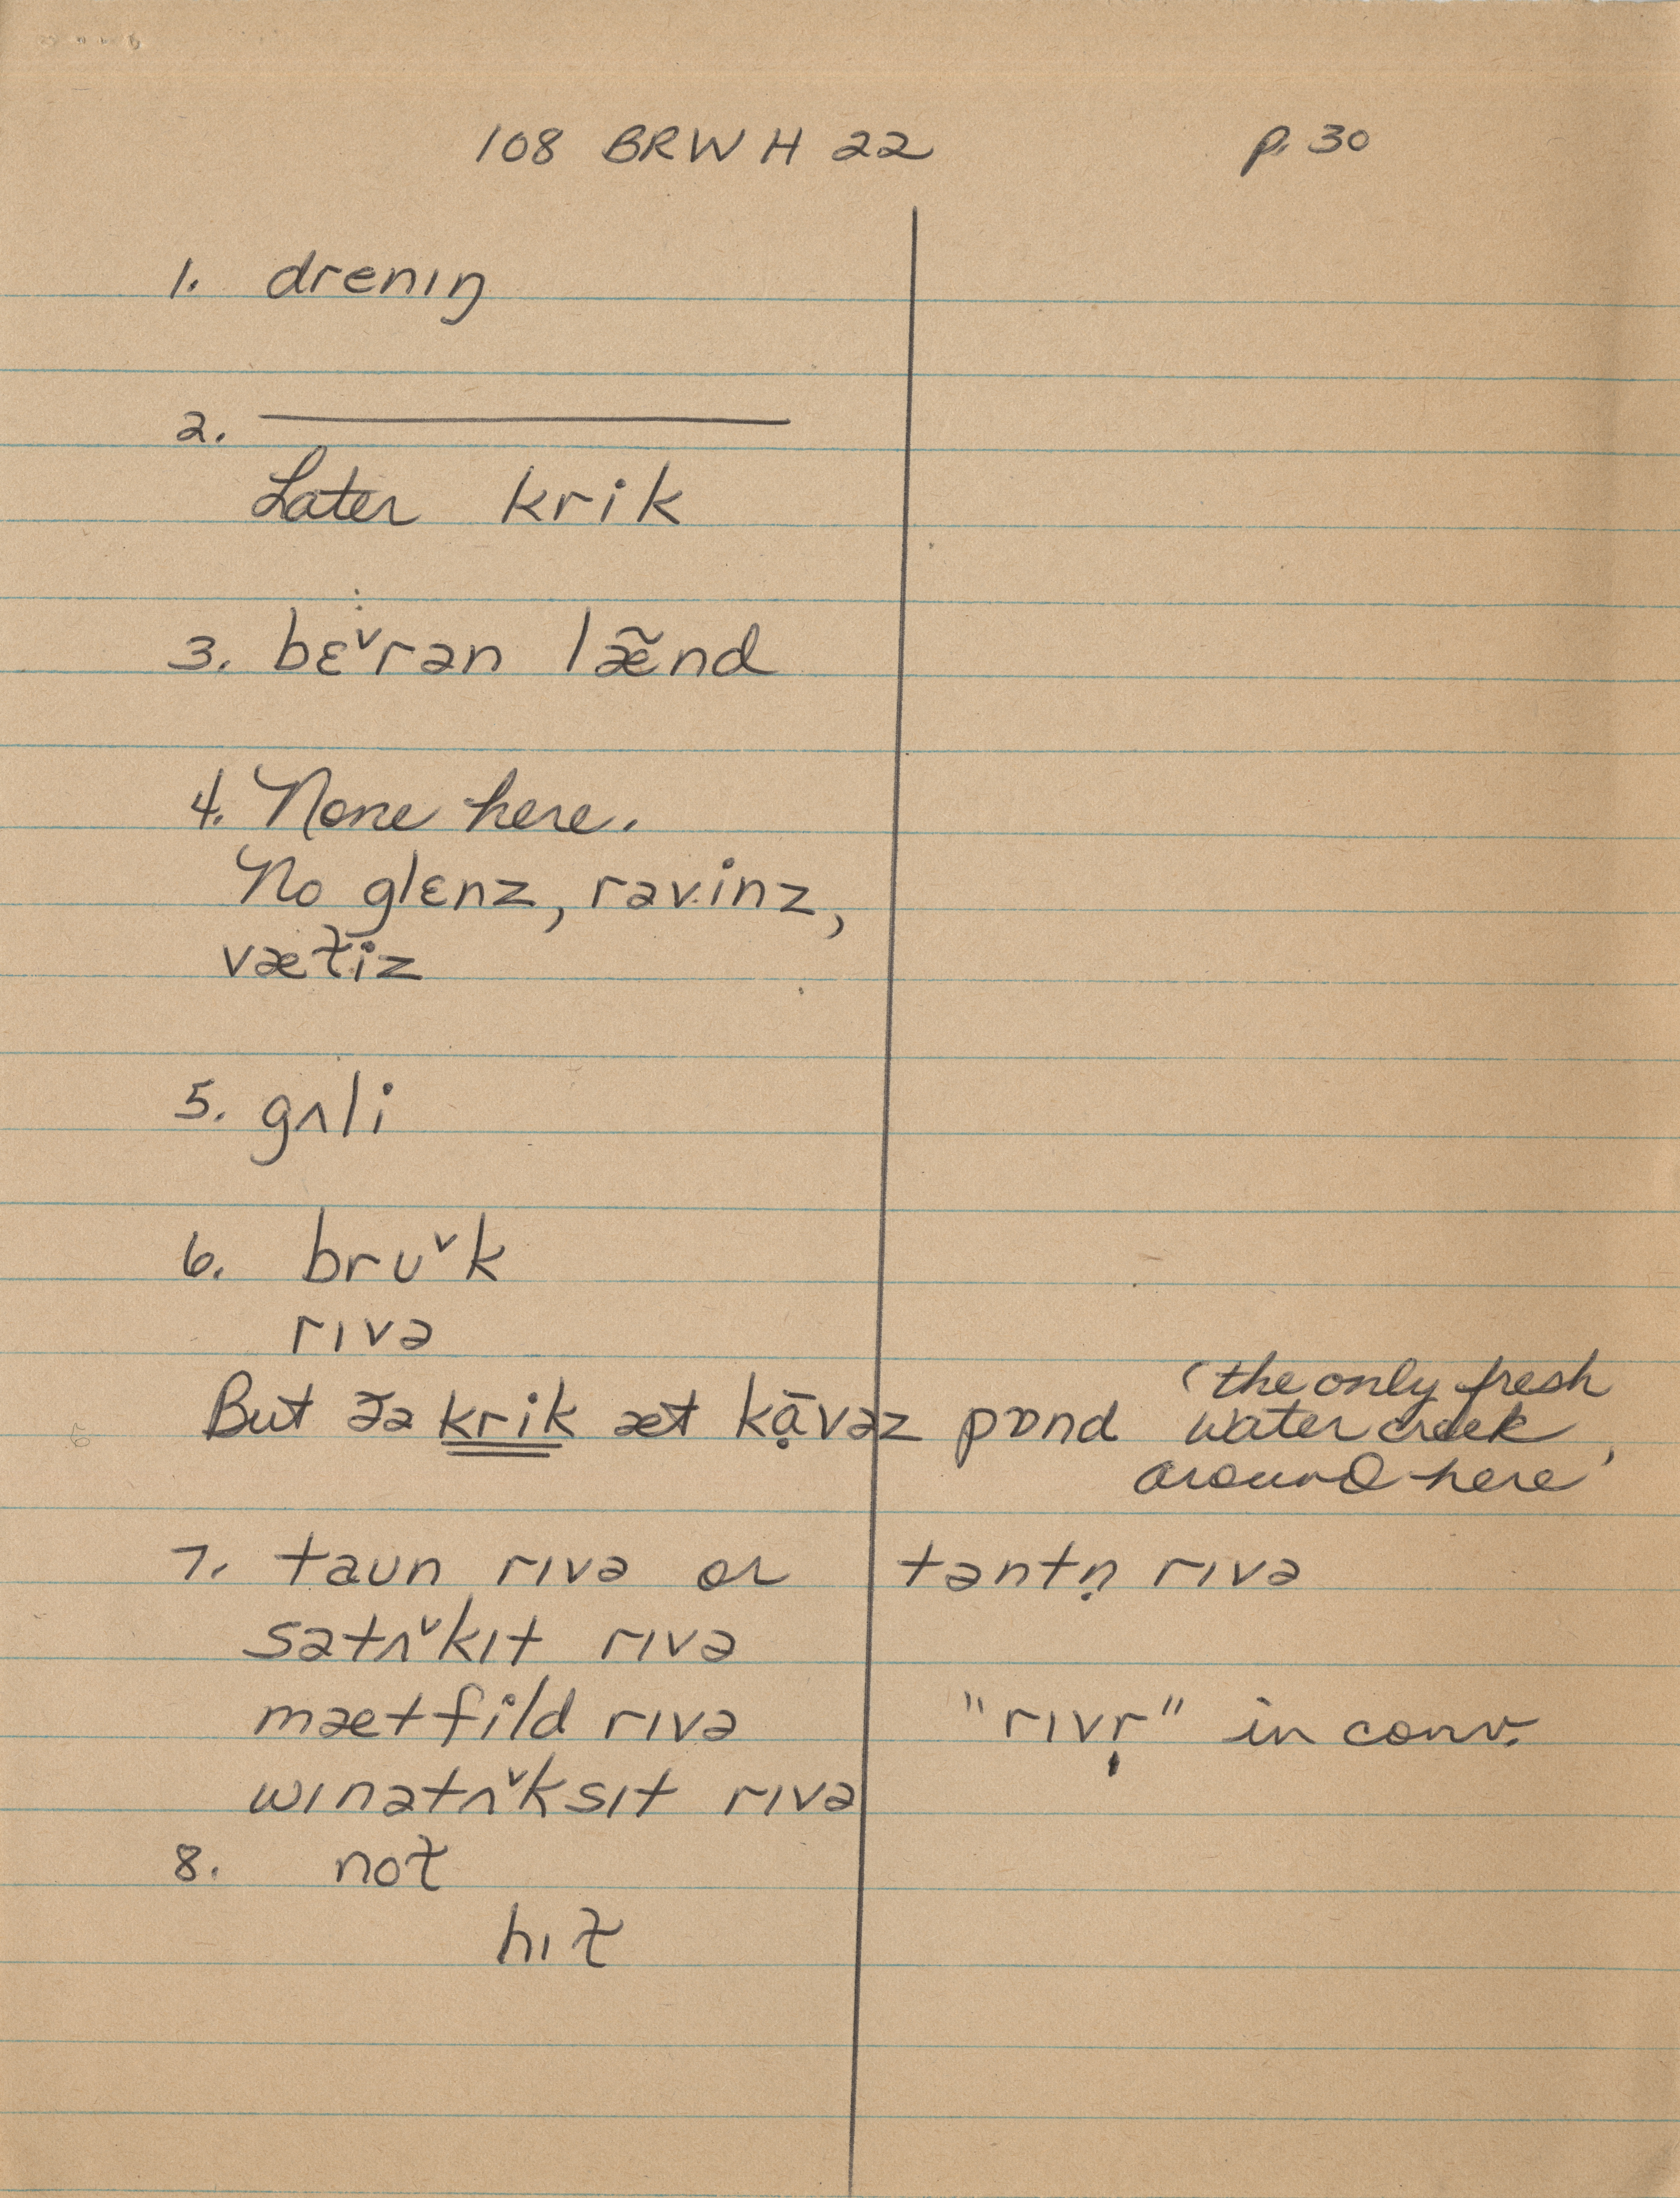 108 BRW H 22 p. 30
1. drenɪŋ
2. ————
Later krik
3. bɛ˅rən læ̃nd
4. None here.
No glɛnz, rəvinz,
væt̬iz
5. gʌli
6. brʊ˅k
rɪvə
But ðə krik æt kạ̄vəz pɒnd (the only fresh
water creek
around here
7. taʊn rɪvə or təntṇ rɪvə
sətʌ˅kɪt rɪvə
mætfild rɪvə "rɪvṛ" in conv.
wɪnətʌ˅ksɪt rɪvə
8. not̬
hɪt̬